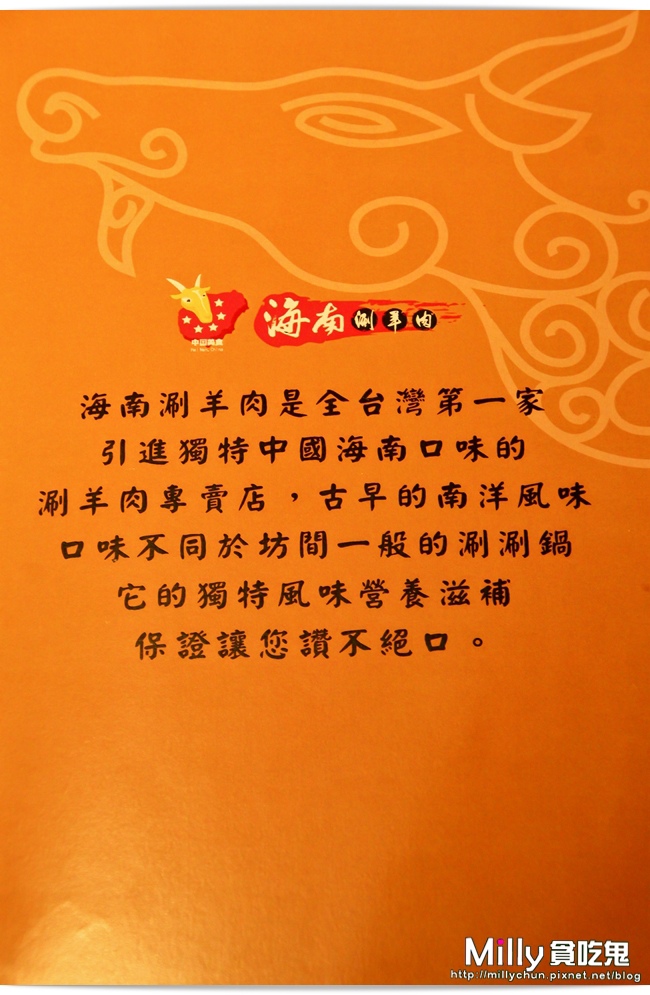 海南涮羊肉
海南涮羊肉是全台灣第一家
引進獨特中國海南口味的
涮羊肉專賣店，古早的南洋風味
口味不同於坊間一般的涮涮鍋
它的獨特風味營養滋補
保證讓您讚不絕口。
Milly 貪吃鬼
http://millychun.pixnet.net/blog